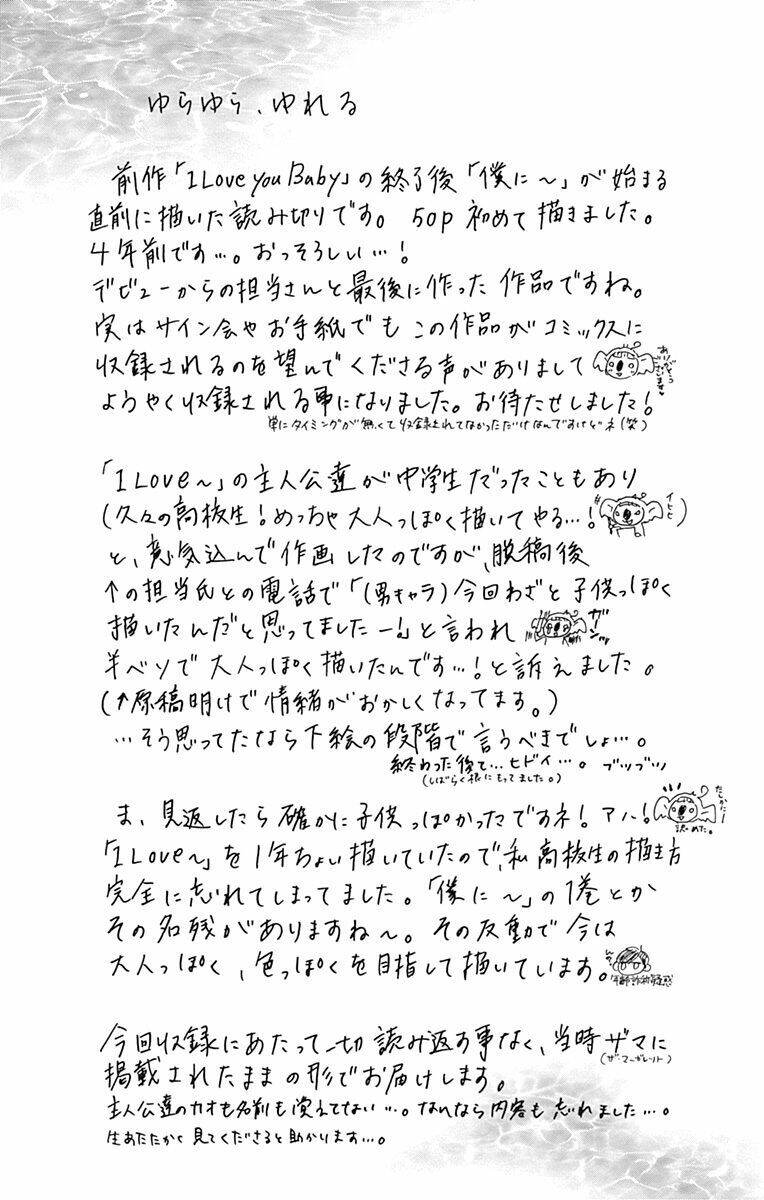 ゆらゆら、ゆれる
前作「I Love you Baby」の終了後「僕に～」が始まる
直前に描いた読み切りです。50p 初めて描きました。
4年前です…。おっそろしい…！
デビューからの担当さんと最後に作った作品ですね。
実はサイン会やお手紙でもこの作品がコミックスに
収録されるのを望んでくださる声がありまして
ありがとうございます
ようやく収録される事になりました。お待たせしました！
単にタイミングが無くて収録されてなかっただけなんですけどネ(笑)
「I Love～」の主人公達が中学生だったこともあり
(久々の高校生！めっちゃ大人っぽく描いてやる…！
イヒヒ
)
と、意気込んで作画したのですが、脱稿後
↑の担当氏との電話で「(男キャラ)今回わざと子供っぽく
描いたんだと思ってましたー！」と言われ
ガーン
半ベソで大人っぽく描いたんです…！と訴えました。
(↑原稿明けで情緒がおかしくなってます。)
…そう思ってたなら下絵の段階で言うべきでしょ…。
終わった後で…ヒドイ…。ブツブツ
(しばらく根にもってました。)
ま、見返したら確かに子供っぽかったですネ！アハ！
たしかにー
認めた。
「I Love～」を1年ちょい描いていたので、私高校生の描き方
完全に忘れてしまってました。「僕に～」の1巻とか
その名残がありますね～。その反動で今は
大人っぽく、色っぽくを目指して描いています。
年齢詐称疑惑
今回収録にあたって一切読み返す事なく、当時ザマに
(ザ・マーガレット)
掲載されたままの形でお届けします。
主人公達のカオも名前も覚えてない…。なんなら内容も忘れました…。
生あたたかく見てくださると助かります…。